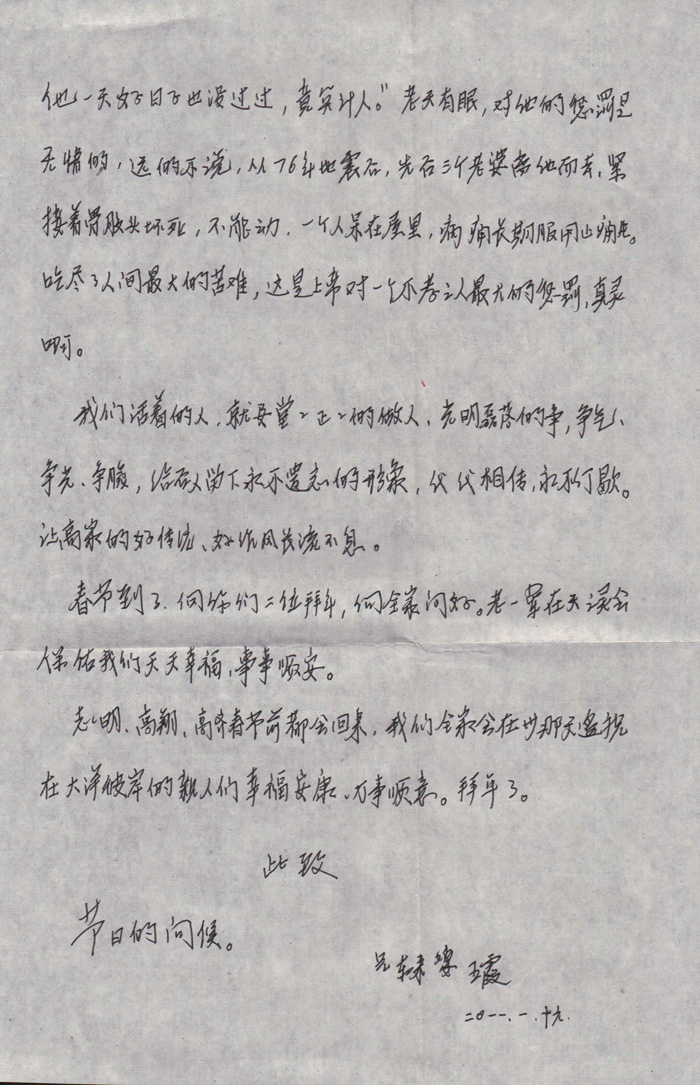 他一天好日子也没过过，竟算计人。”老天有眼，对他的惩罚是
无情的，远的不说，从76年地震后，先后3个老婆离他而去，紧
接着骨股头坏死，不能动，一个人呆在屋里，病痛长期服用止痛片。
吃尽了人间最大的苦难，这是上帝对一个不孝之人最大的惩罚，真灵
啊。
我们活着的人，就要堂〻正〻的做人、光明磊落的事，争气、
争光、争脸，给后人留下永不遗忘的形象，代代相传，永不停歇。
让高家的好传统、好作风长流不息。
春节到了，向你们二位拜年，向全家问好。老一辈在天之灵会
保佑我们天天幸福，事事顺安。
志明、高翔、高齐春节前都会回来，我们全家会在廿那天遥祝
在大洋彼岸的亲人们幸福安康、万事顺意。拜年了。
此致
节日的问候。
兄 王霞
二〇一一.一.十九.